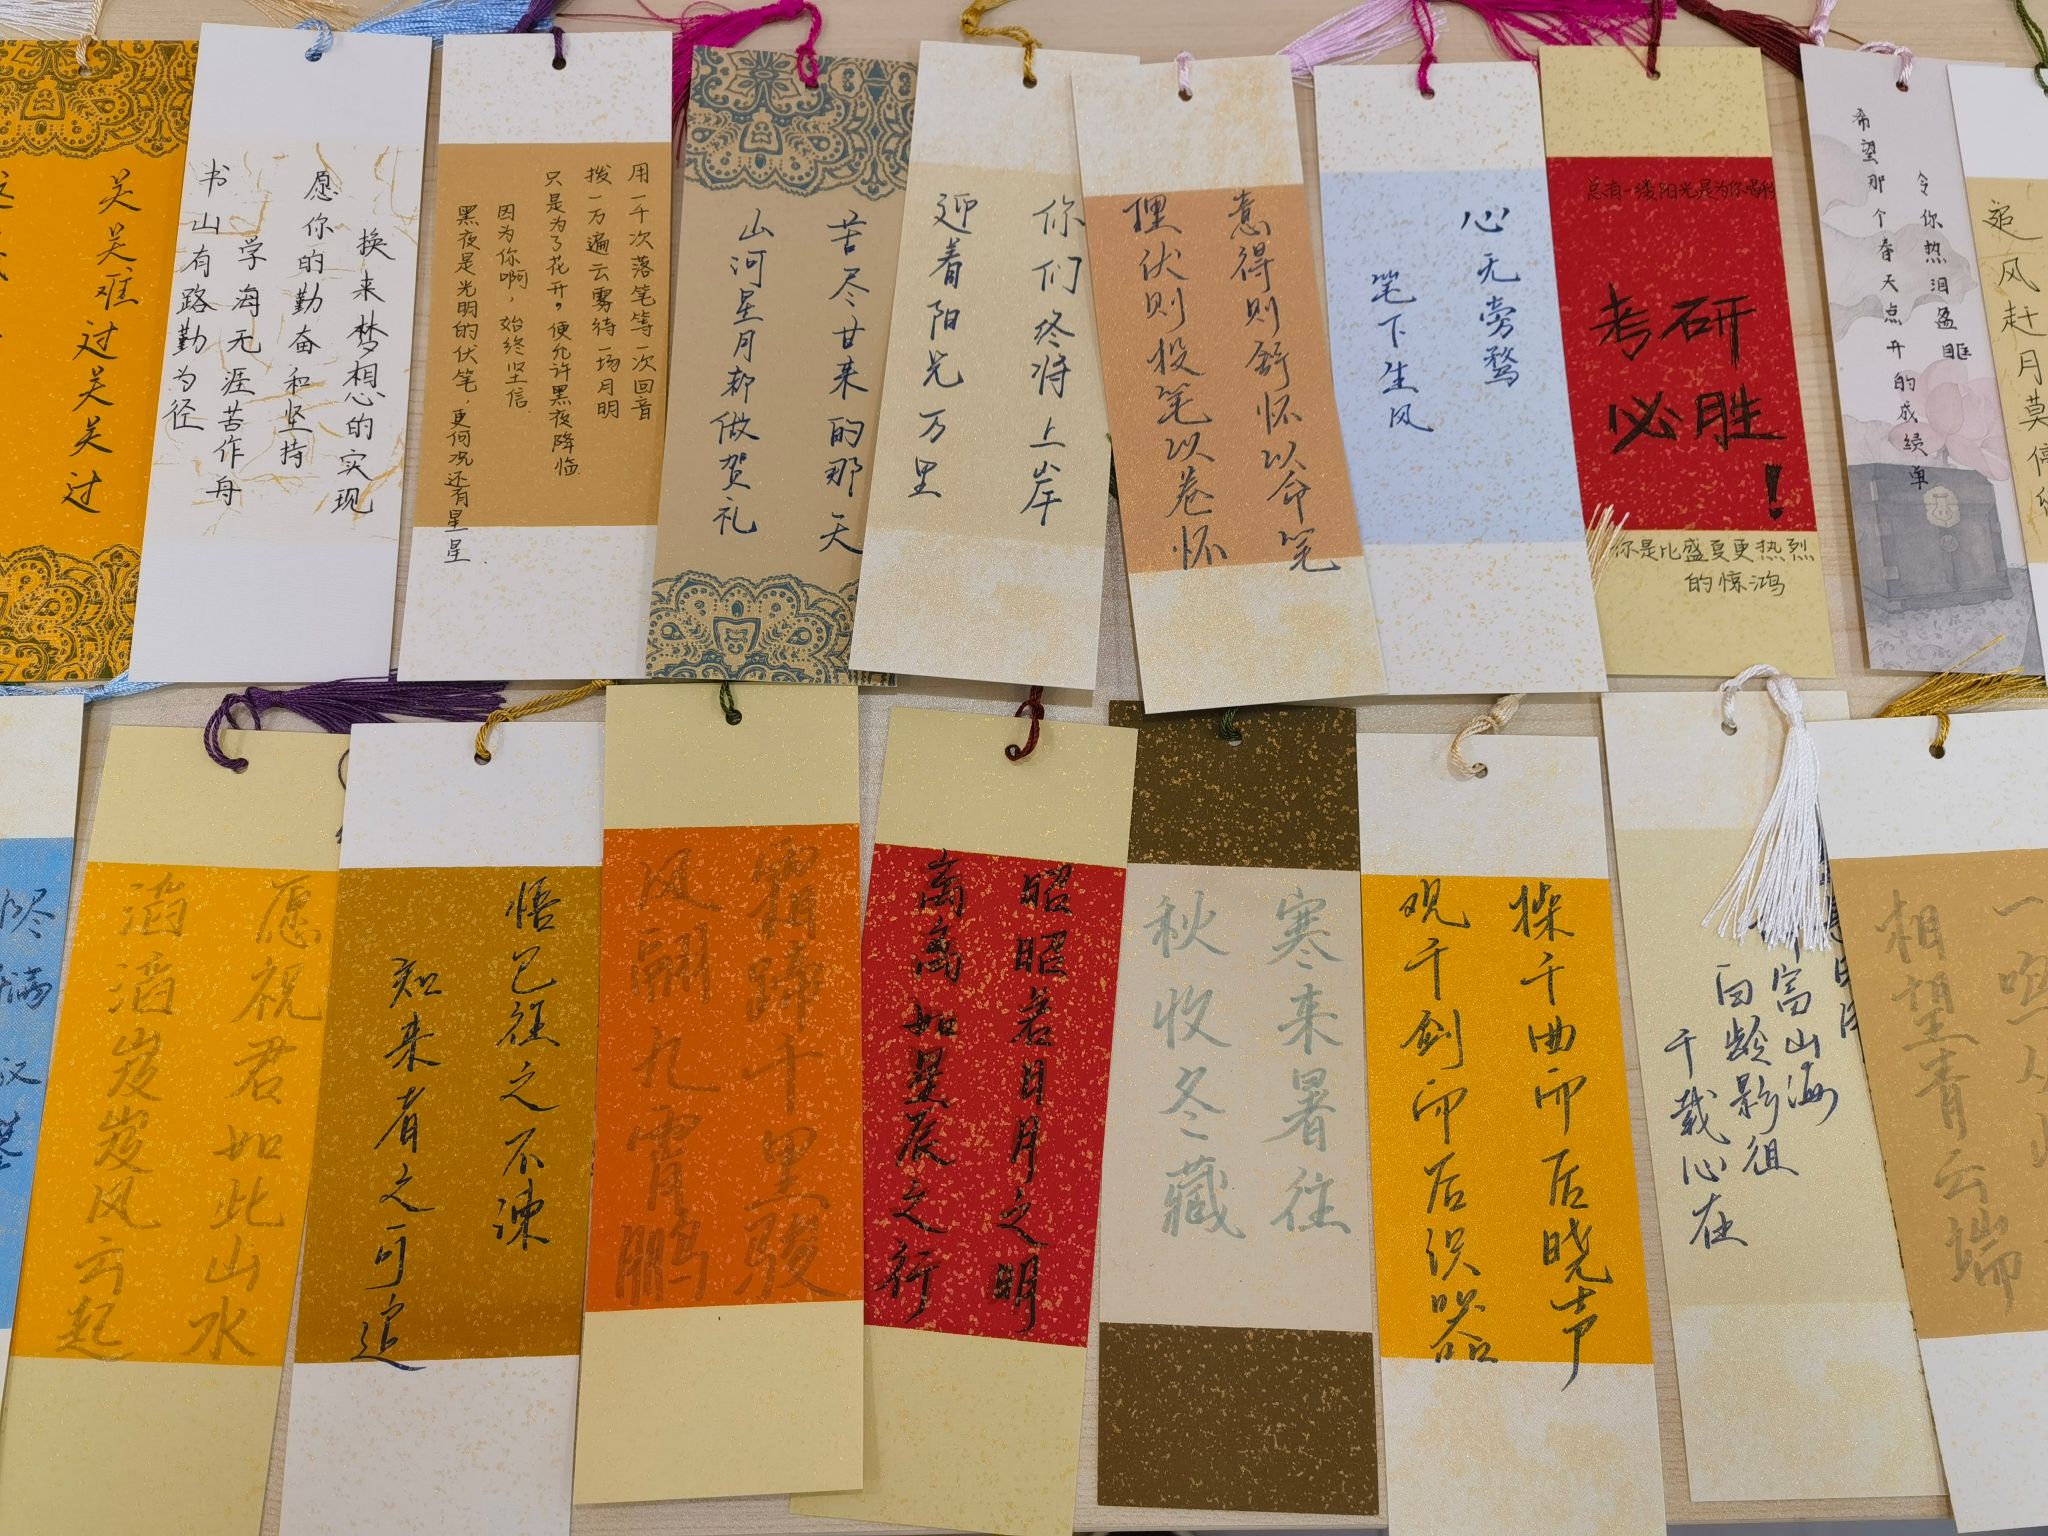 关关难过关关过
愿你的勤奋和坚持
换来梦想的实现
书山有路勤为径
学海无涯苦作舟
用一千次落笔等一次回音
拨一万遍云雾待一场月明
只是为了花开，便允许黑夜降临
因为你啊，始终坚信
黑夜是光明的伏笔，更何况还有星星
苦尽甘来的那天
山河星月都做贺礼
你们终将上岸
迎着阳光万里
意得则舒怀以命笔
理伏则投笔以卷怀
心无旁骛
笔下生风
总有一缕阳光是为你
考研
必胜！
你是比盛夏更热烈
的惊鸿
希望那个春天点开的成绩单
令你热泪盈眶
追风赶月莫停
愿祝君如此山水
滔滔岌岌风云起
悟已往之不谏
知来者之可追
霜蹄千里骏
风翮九霄鹏
昭昭若日月之明
离离如星辰之行
寒来暑往
秋收冬藏
操千曲而后晓声
观千剑而后识器
富山海
百龄影徂
千载心在
相望青云端